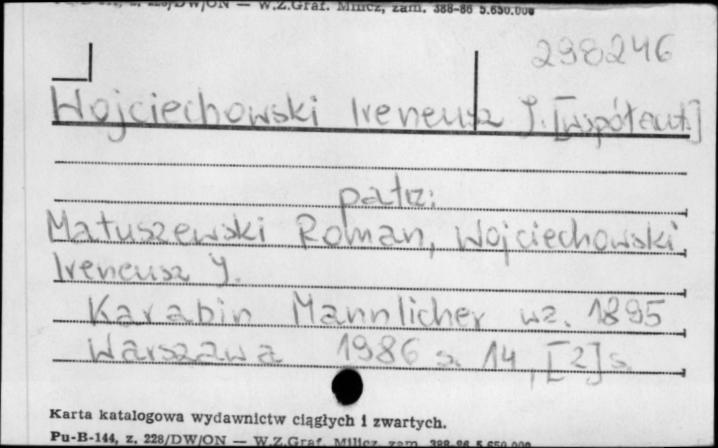 W.Z.Graf. Milicz, zam. 388-86 5.650.000
298246
Wojciechowski Ireneusz J. [współaut.]
patrz:
Matuszewski Roman, Wojciechowski
Ireneusz J.
Karabin Mannlicher wz. 1895
Warszawa 1986 s. 14, [2] s.
Karta katalogowa wydawnictw ciągłych i zwartych.
Pu-B-144, z. 228/DW/ON — W.Z.Graf. Milicz zam. 388-86 5.650.000